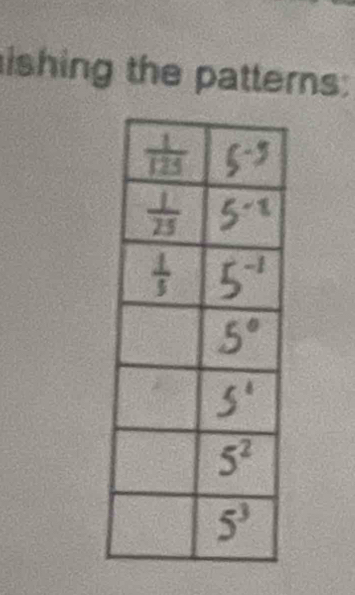 ishing the patterns:
1/125 5⁻³
1/25 5⁻²
1/5 5⁻¹
5⁰
5¹
5²
5³